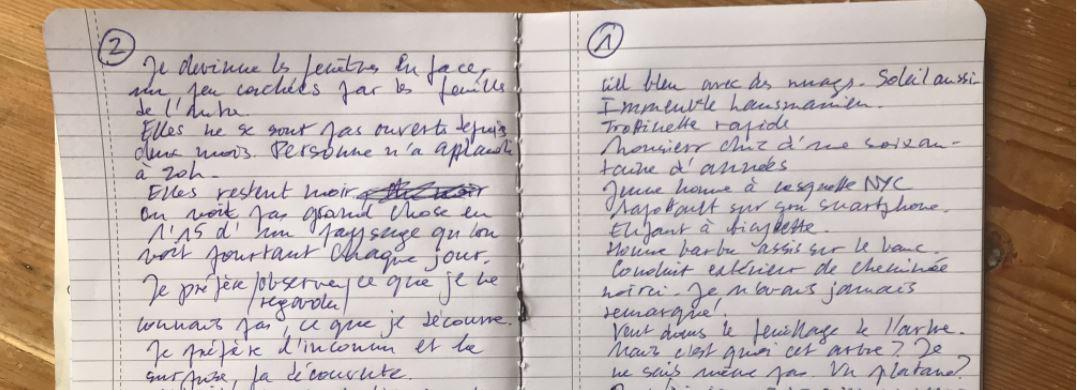 2
Je devine les fenêtres en face,
un peu cachées par les feuilles
de l'arbre.
Elles ne se sont pas ouvertes depuis
deux mois. Personne n'a applaudi
à 20h.
Elles restent noir
On voit pas grand chose en
1'15 d'un paysage qu'on
voit pourtant chaque jour.
Je préfère /observer/ ce que je ne
regarder/
connais pas, ce que je découvre.
Je préfère l'inconnu et la
surprise, la découverte.
1
Ciel bleu avec des nuages. Soleil aussi
Immeuble haussmanien.
Trottinette rapide
Monsieur chic d'une soixan-
taine d'années
Jeune homme à casquette NYC
tapotant sur son smartphone.
Enfant à trottinette.
Homme barbu assis sur le banc.
Conduit extérieur de cheminée
noirci. Je n'avais jamais
remarqué!
Vent dans le feuillage de l'arbre.
Mais c'est quoi cet arbre? Je
ne sais même pas. Un platane?